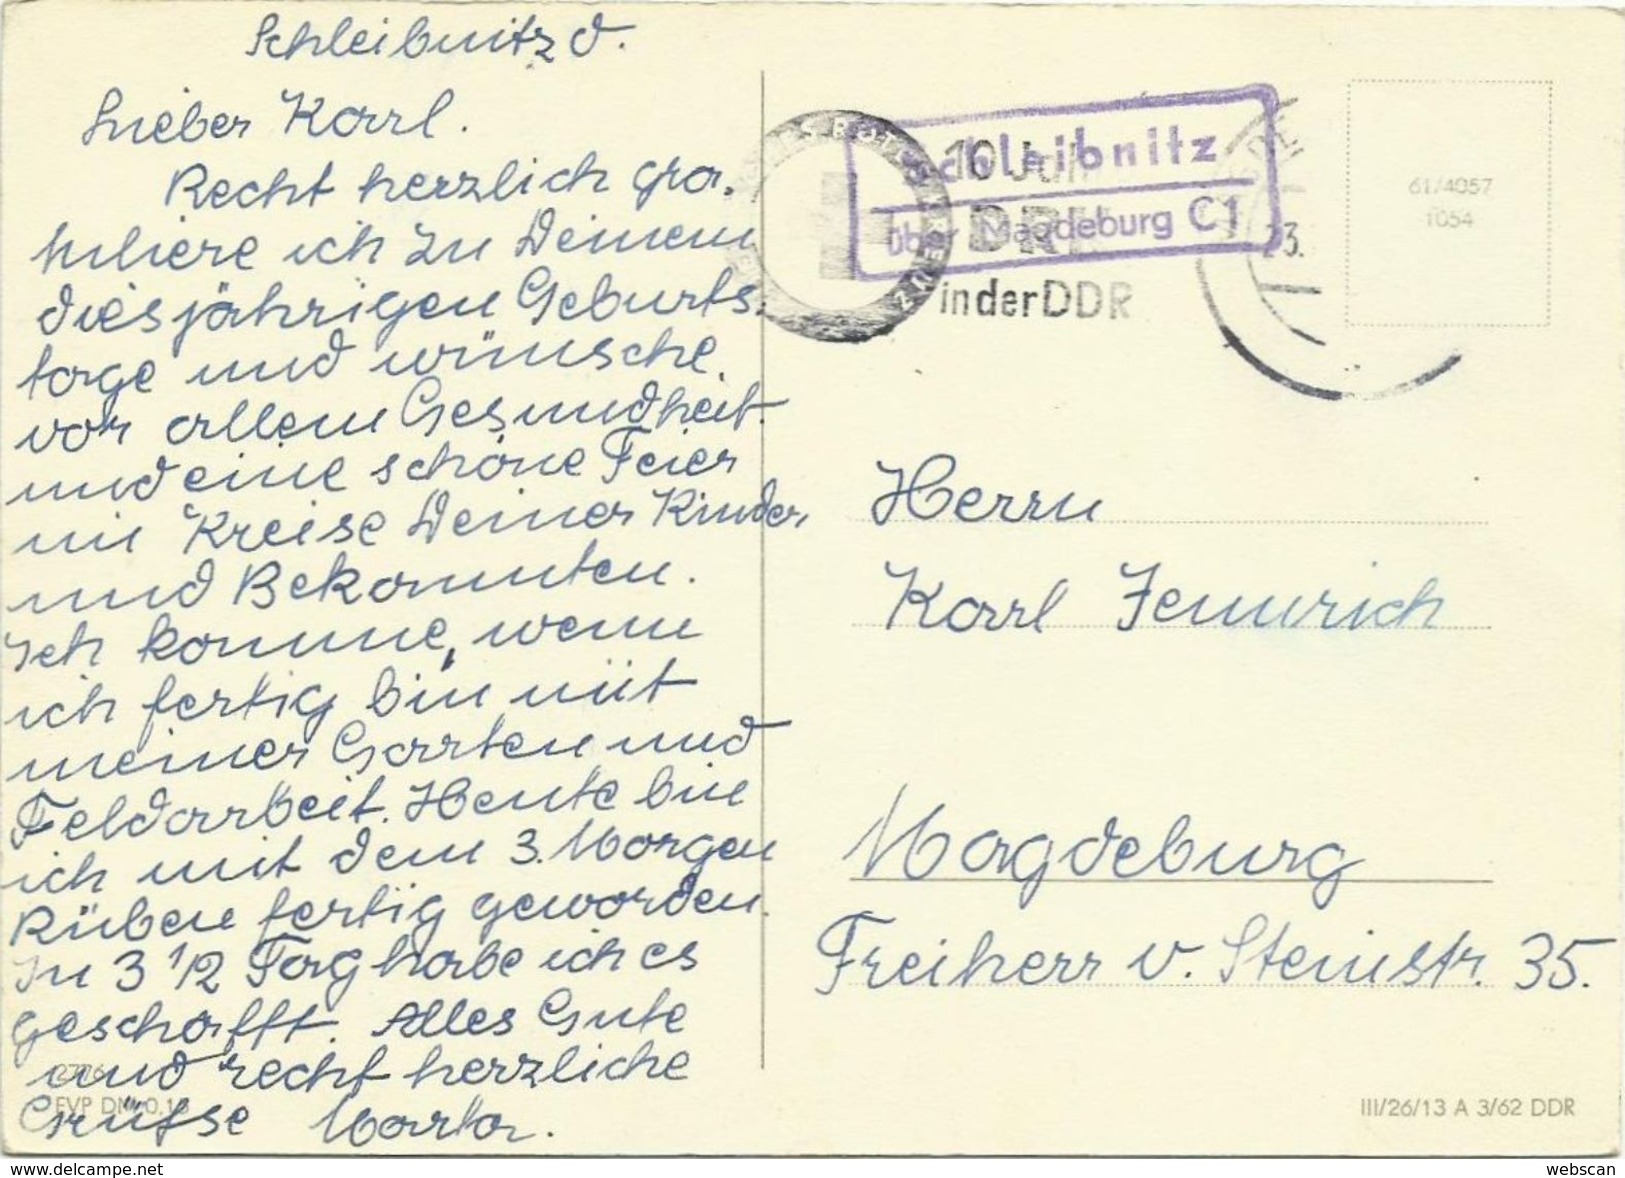 Schleibnitz d.
Lieber Karl.
Recht herzlich gra-
tuliere ich zu Deinem
diesjährigen Geburts-
tage und wünsche
vor allem Gesundheit
und eine schöne Feier
im Kreise Deiner Kinder
und Bekannten.
Ich komme, wenn
ich fertig bin mit
meiner Garten und
Feldarbeit. Heute bin
ich mit dem 3. Morgen
Rüben fertig geworden.
In 3 1/2 Tag habe ich es
geschafft. Alles Gute
und recht herzliche
Grüße Marta.
EVP DM 0,
Schleibnitz
über Magdeburg C1
10 Jahre
DRK
in der DDR
23.
61/4057
1054
Herrn
Karl Jennrich
Magdeburg
Freiherr v. Steinstr. 35.
III/26/13 A 3/62 DDR
www.delcampe.net
webscan